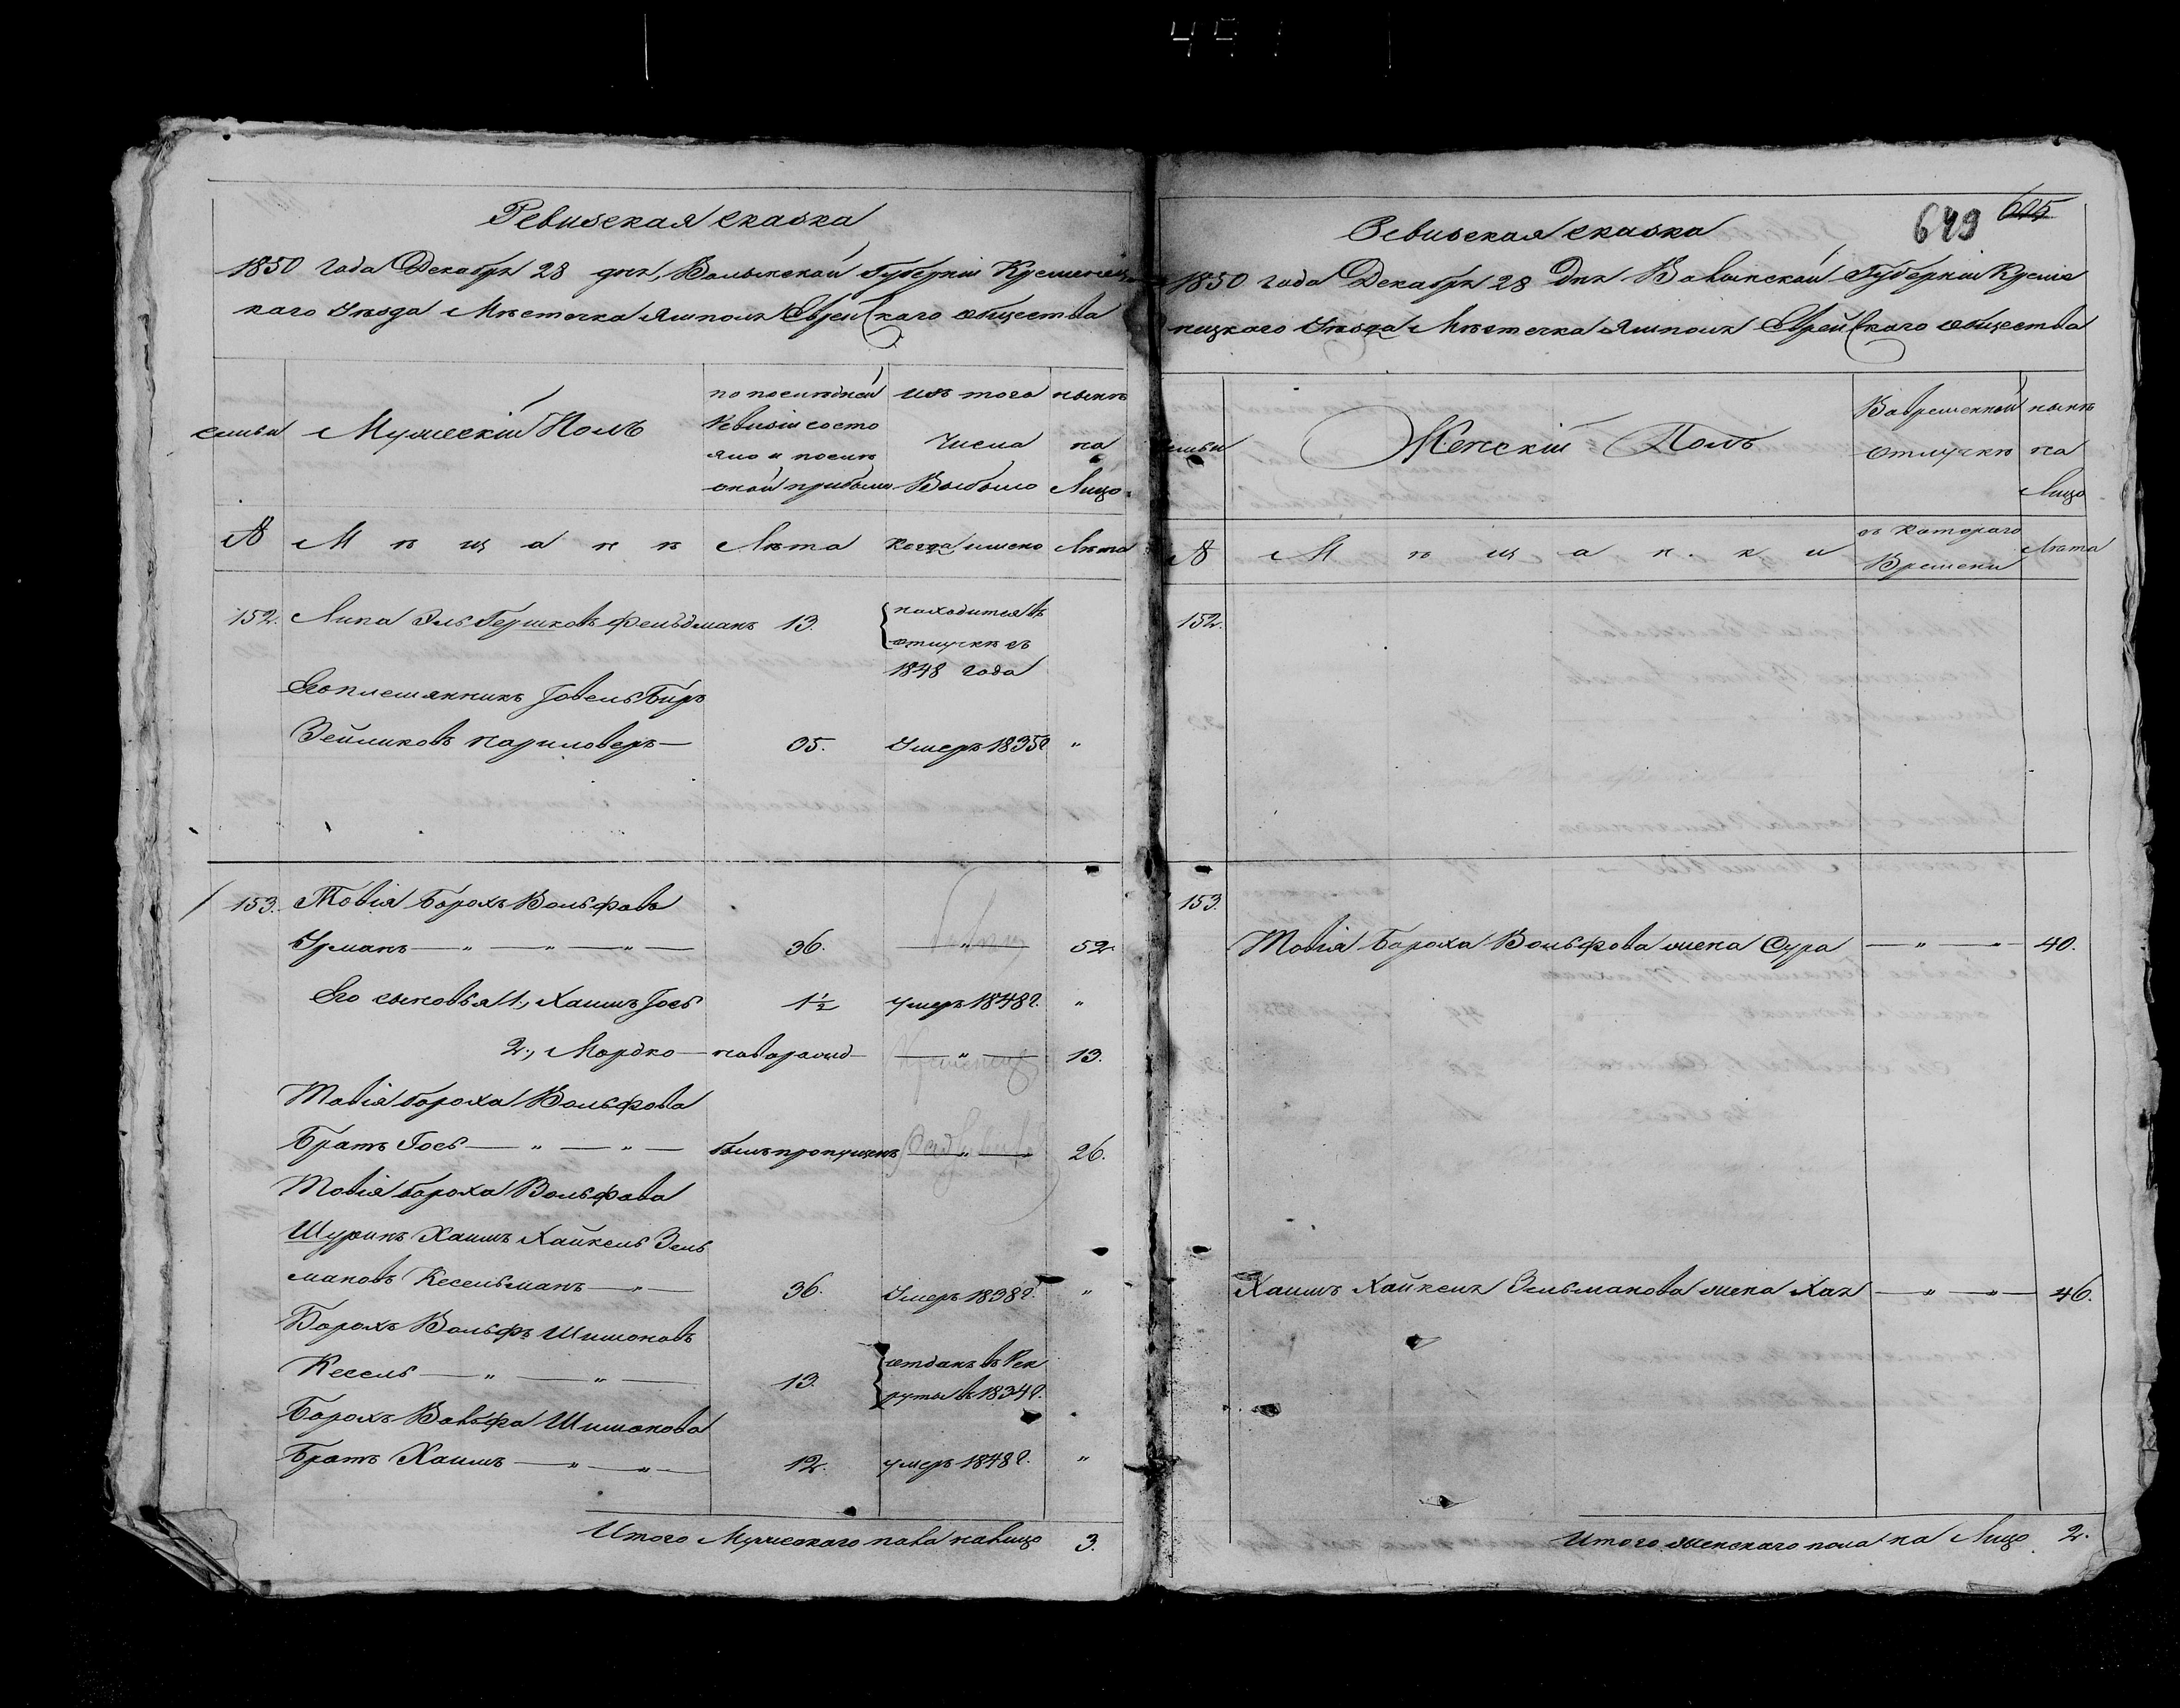 Ревизская сказка
1850 года Декабря 28 дня, Волынской Губерніи Кременец
каго Уѣзда Мѣстечка Ямполя Еврейскаго общества
семьи
Мужескій Полъ
по послѣдней
Ревизіи состо
яло и послѣ
оной прибыло
изъ того
Числа
Выбыло
нынѣ
на
Лицо
№
Мѣщанѣ
Лѣта
когда имено
Лѣта
152. Липа Эль Гершковъ Фельдманъ 13. находится въ
отлучкѣ съ
1848 года
Его племянникъ Іовель Беръ
Зейликовъ 05. Умеръ 1835 г. "
153. Товія Борохъ Вольфовъ
Урманъ — " — " — " — 36. — " — 52.
Его сыновья 1., Хаимъ Іось 1½ умеръ 1848 г. "
2., Мордко — новорожд — — " — 13.
Товія Бороха Вольфова
Братъ Іось — " — " — былъ пропущенъ — " — 26.
Товія Бороха Вольфова
Шуринъ Хаимъ Хайкель Зель
мановъ Кесельманъ — " — 36. Умеръ 1838 г. "
Борохъ Вольфъ Шимоновъ
Кесель — " — " — 13. отданъ в Рек
руты въ 1834 г.
Борохъ Вольфа Шимонова
Братъ Хаимъ — " — " — 12. умеръ 1848 г. "
Итого Мужескаго пола налицо 3.
649 605
Ревизская сказка
1850 года Декабря 28 Дня Волынской Губерніи Креме
нецкаго Уѣзда Мѣстечка Ямполя Еврейскаго общества
семьи
Женскій Полъ
Во временной
отлучкѣ
нынѣ
на
Лицо
№
Мѣщанки
съ котораго
Времени
Лѣта
152.
153.
Товія Бороха Вольфова жена Сура — " — " — 40.
Хаимъ Хайкеля Зельманова жена Хая — " — " — 46.
Итого женскаго пола на Лицо 2.